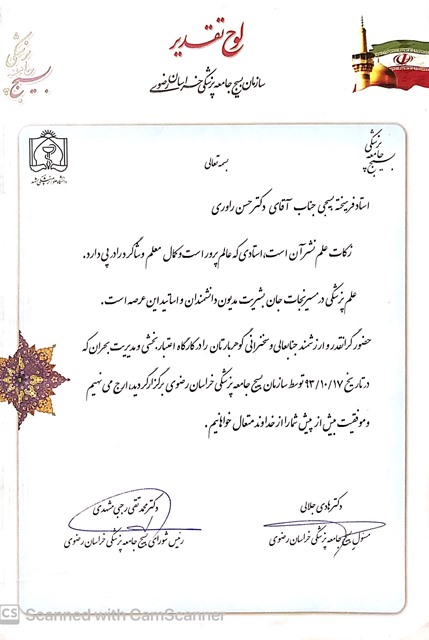 لوح تقدیر
سازمان بسیج جامعه پزشکی خراسان رضوی
بسیج جامعه پزشکی
بسیج جامعه پزشکی
بسمه تعالی
استاد فرهیخته بسیجی جناب آقای دکتر حسن راوری
زکات علم نشر آن است، استادی که عالم پرور است و کمال معلم و شاگرد را در پی دارد.
علم پزشکی در مسیر نجات جان بشریت مدیون دانشمندان و اساتید این عرصه است.
حضور گرانقدر و ارزشمند جنابعالی و سخنرانی گوهربارتان را در کارگاه اعتباربخشی و مدیریت بحران که
در تاریخ ۹۳/۱۰/۱۷ توسط سازمان بسیج جامعه پزشکی خراسان رضوی برگزار گردید، ارج می نهیم
و موفقیت بیش از پیش شما را از خداوند متعال خواهانیم.
دکتر هادی جلالی
مسئول بسیج جامعه پزشکی خراسان رضوی
دکتر محمد تقی رجبی مشهدی
رئیس شورای بسیج جامعه پزشکی خراسان رضوی
CS Scanned with CamScanner